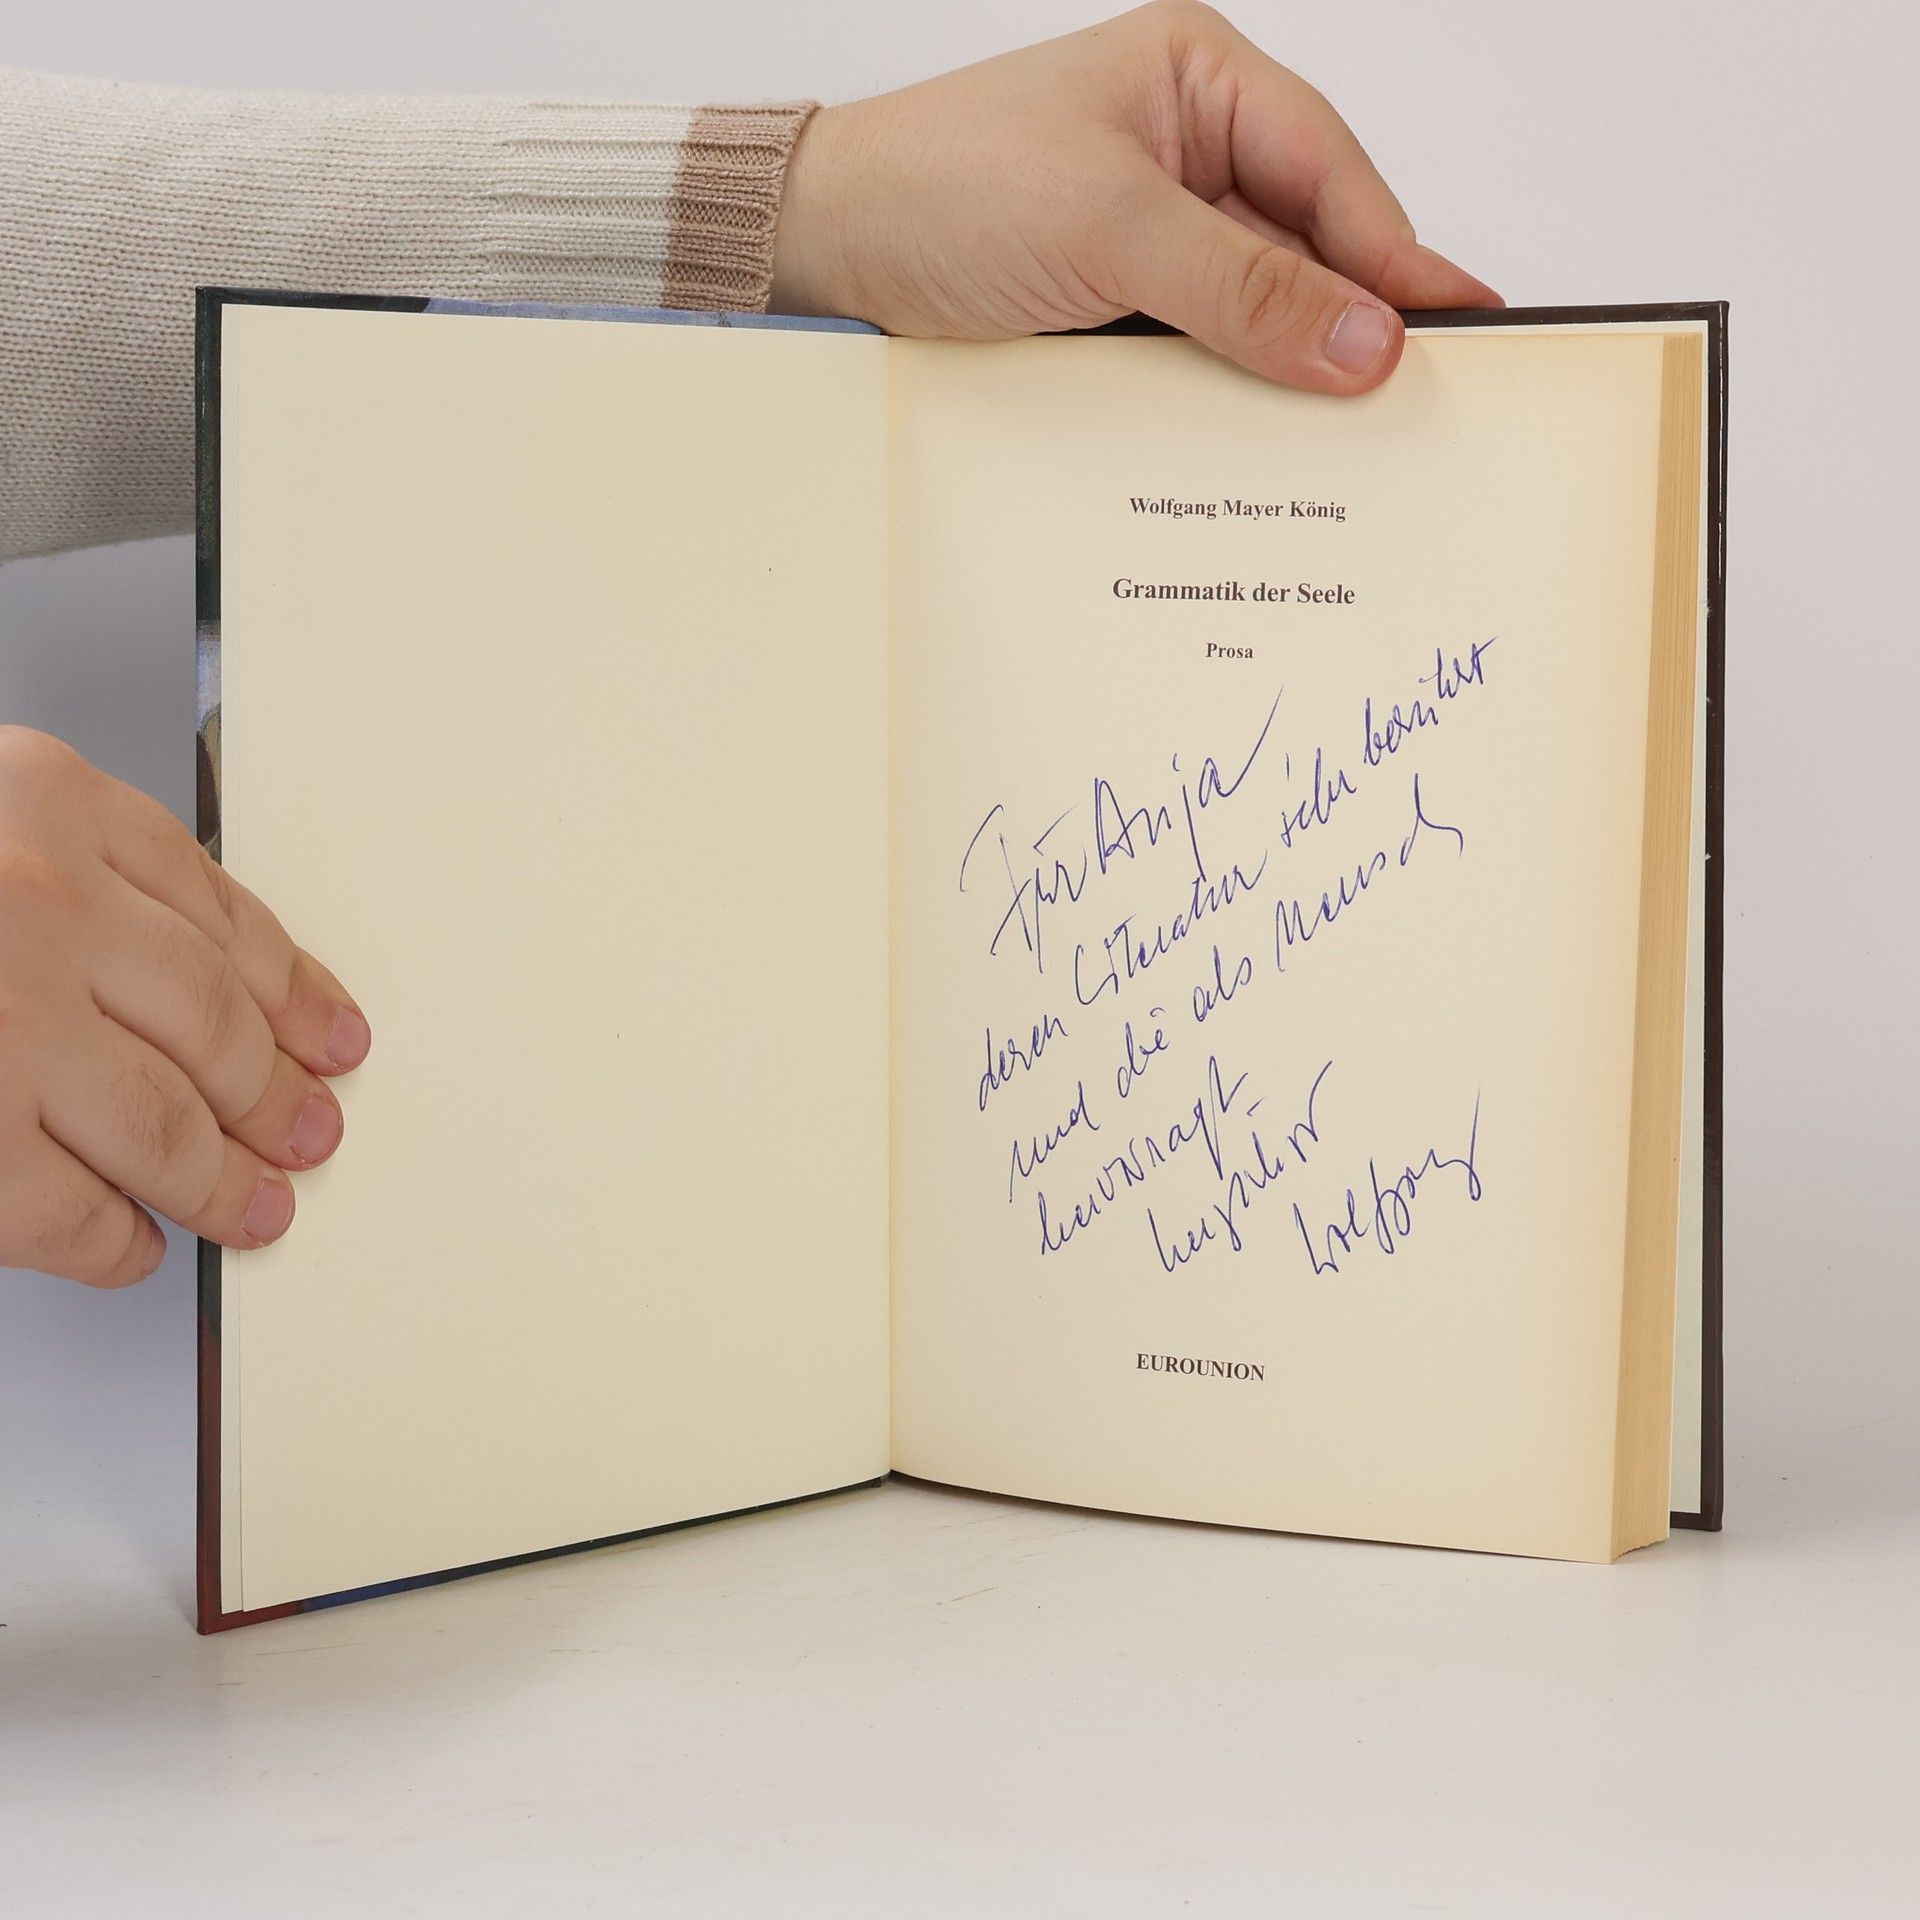 Wolfgang Mayer König
Grammatik der Seele
Prosa
Für Anja
deren Literatur sehr berührt
und die als Mensch
hervorragt
herzlichst
Wolfgang
EUROUNION